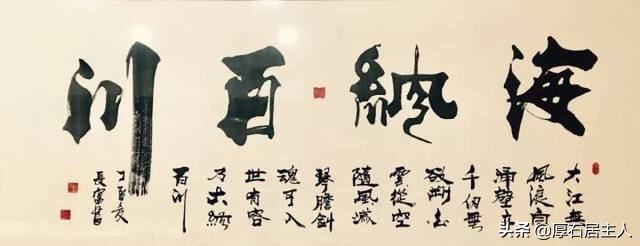 海納百川
大江無
風浪自
涌壁立
千仞無
欲剛白
雲從空
隨風滅
琴膽劍
魂可入
世有容
乃大納
百川
丁酉夏
頭条 @厚石居主人